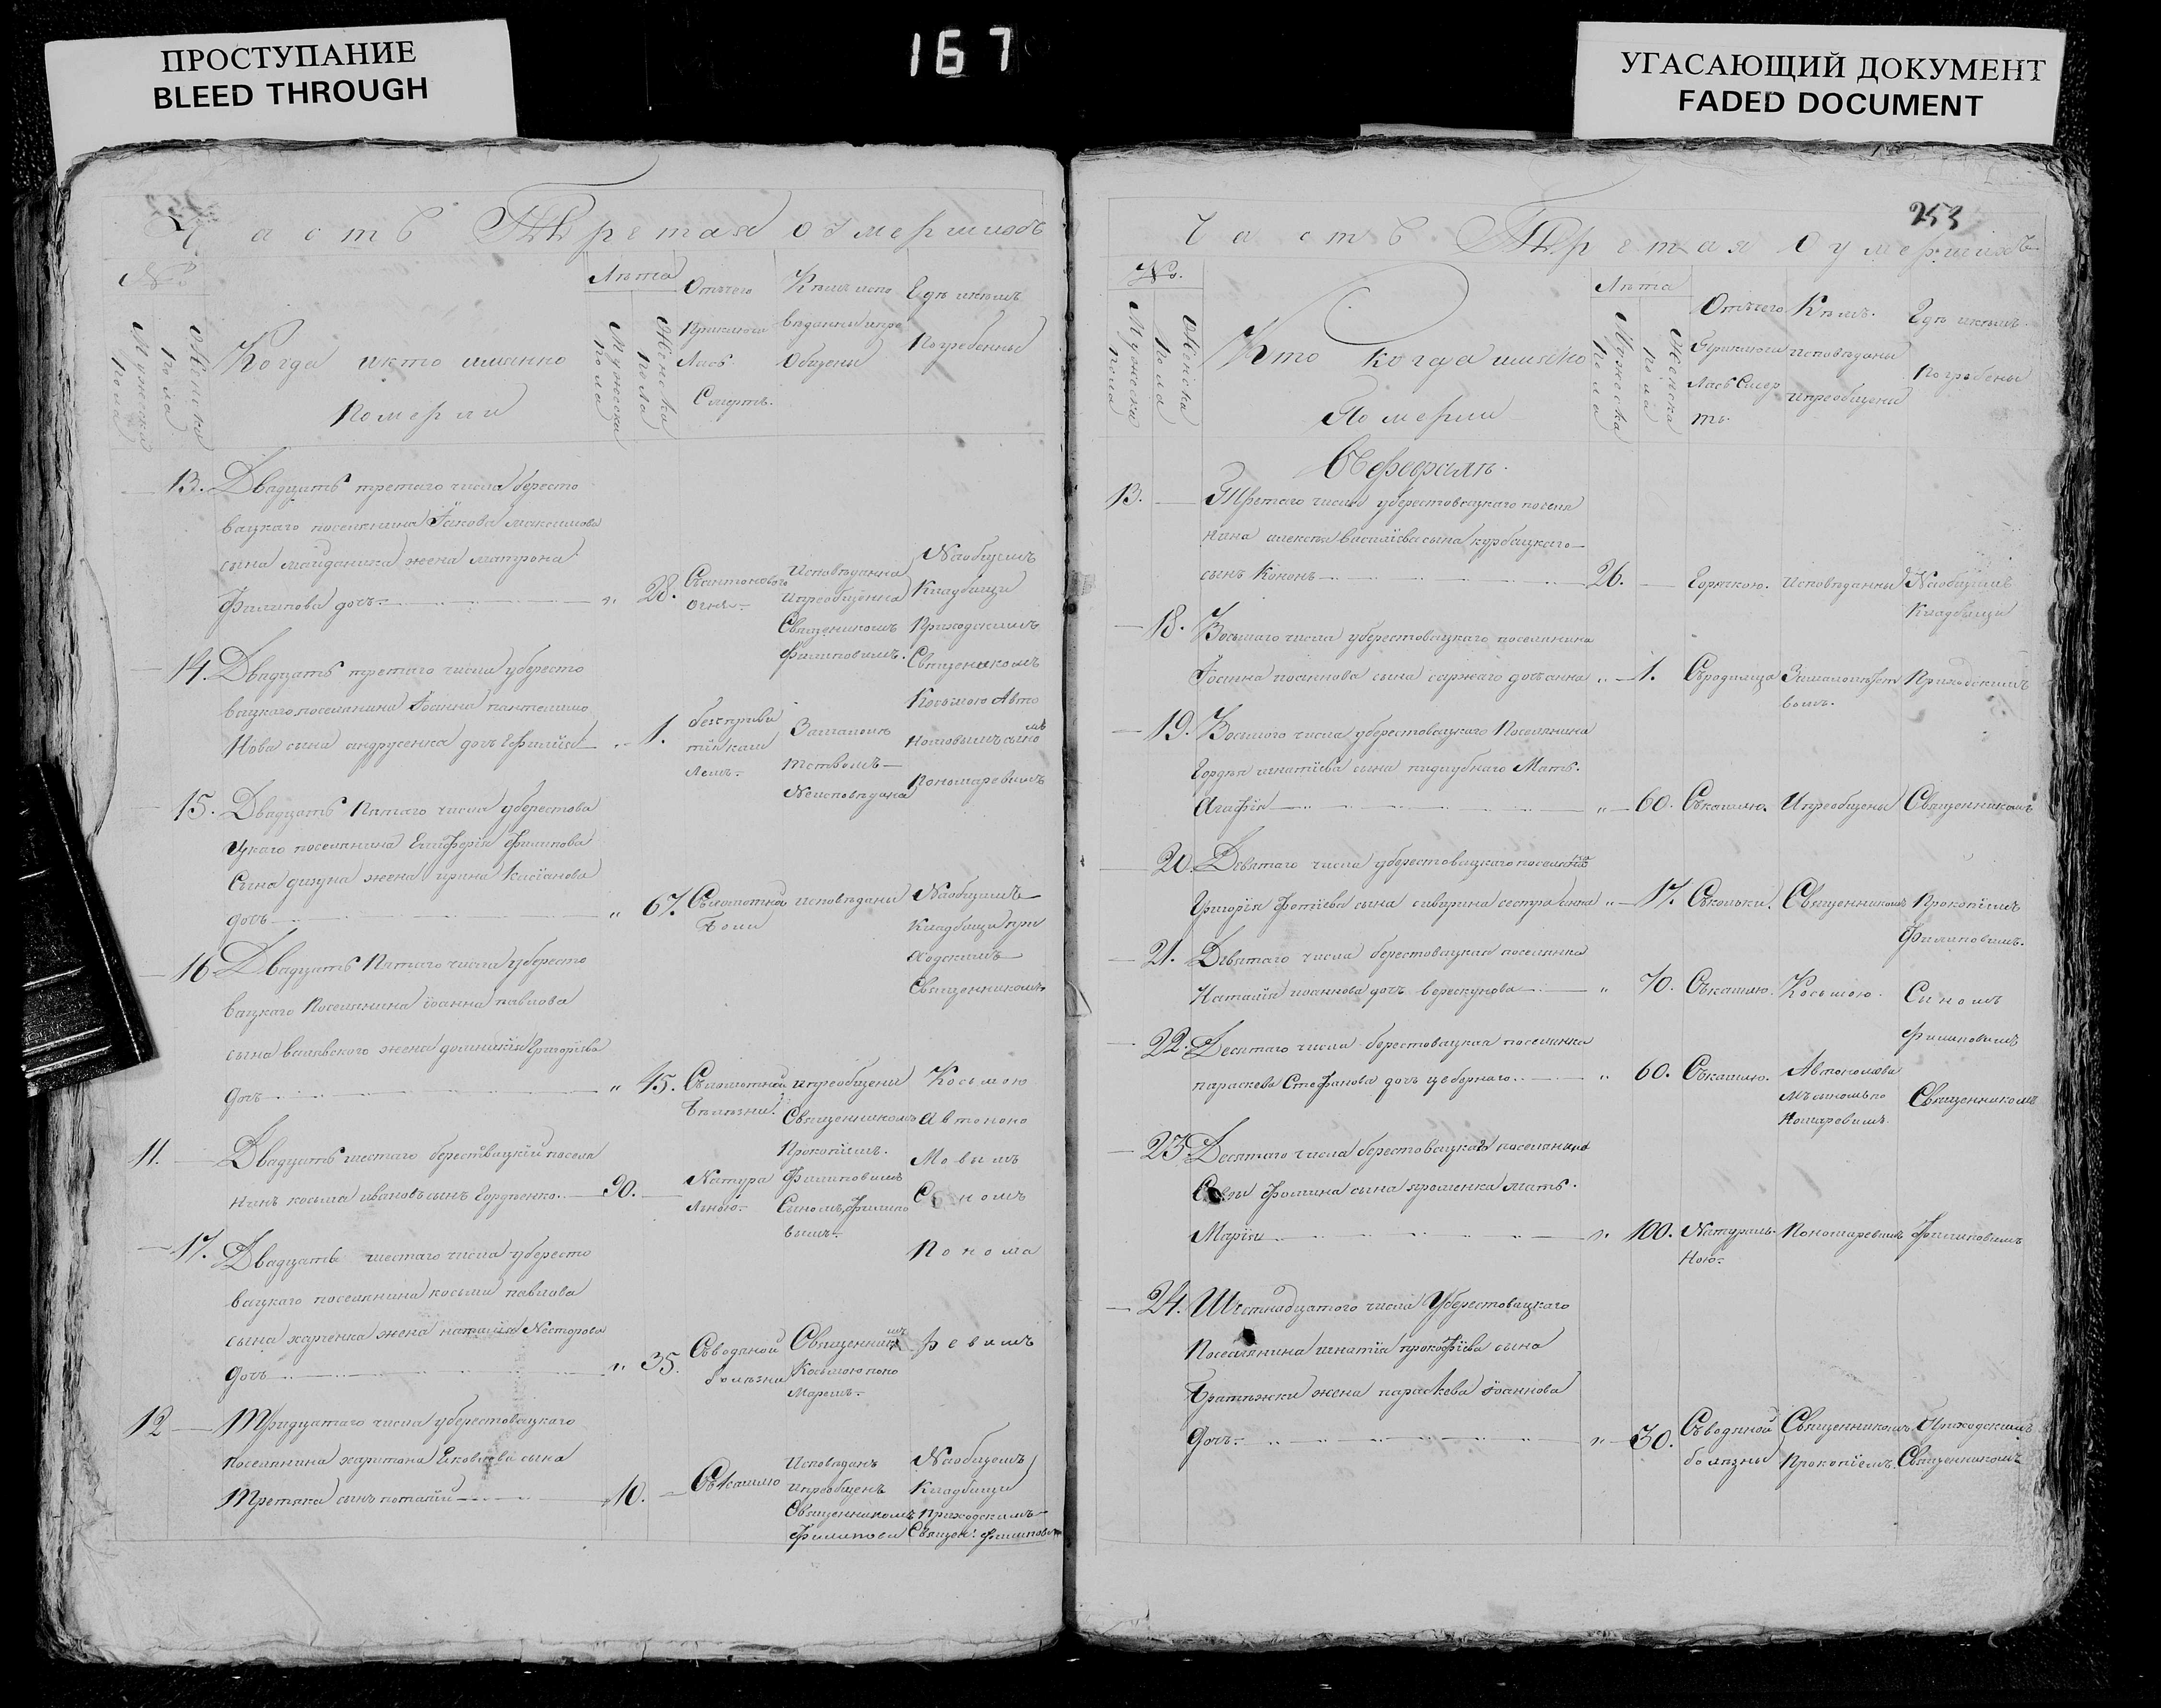 ПРОСТУПАНИЕ
BLEED THROUGH
167
УГАСАЮЩИЙ ДОКУМЕНТ
FADED DOCUMENT
Часть Третая о умершихъ
№
Мужеска пола
Женска пола
Когда икто имянно
померли
Лѣта
Мужеска пола
Женска пола
Отъчего
приключи
лась
Смерть.
Кѣмъ испо
вѣданы ипрі
общены
Гдѣ икѣмъ
погребенны
13. Двадцать третаго числа бересто
вацкаго поселянина Іакова максимова
сына майданика жена матрона
Филипова дочь 28.
Съантонового
огня
Исповѣданна
ипреобщенна
Священикомъ
Филиповымъ.
Наобщемъ
Кладбищи
Приходскимъ
Священикомъ
14. Двадцать третаго числа убересто
вацкаго поселянина Іоанна пантелимо
нова сына андрусенка дочь Ефимія 1.
Косьмою Авто
номовымъ сыно
мъ
Пономаревымъ
Замалолѣ
тствомъ
Неисповѣдана
15. Двадцать Пятаго числа уберестова
цкаго поселянина Елиферія Филипова
Сына дизуна жена ирина Касіанова
дочь 67.
исповѣдани
Наобщимъ
Кладбищи при
ходскимъ
Священникомъ
16 Двадцать Пятаго числа убересто
вацкаго Поселянина іоанна павлова
сына валявского жена домникія Григоріева
дочь 45.
ипреобщени
Священникомъ
Прокопіемъ.
Филиповымъ
Сыномъ Филипо
вымъ
Косьмою
Автононо
мовымъ
Сыномъ
Понома
11. Двадцать шестаго берествацкій поселя
нинъ косьма ивановъ сынъ Гордѣенко 90.
Натура
льною
17. Двадцать шестаго числа убересто
вацкаго поселянина косьми павлова
сына харченка жена наталія Несторова
дочь 35.
Съводяной
болѣзни
Священник
мъ
Косьмою поно
маремъ
ревымъ
12 Тридцатаго числа уберестовацкаго
поселянина харитона Яковлева сына
Третяка сынъ потапій 10.
Съкашлю
Исповѣданъ
ипреобщенъ
Священникомъ
Филипови
Наобщемъ
Кладбищи
Приходскимъ
Священ: Филипови
253
Часть Третая о умершихъ
№.
Мужеска пола
Женска пола
Кто когда имянно
Померли
Лѣта
Мужеска пола
Женска пола
Отъчего
Приключи
лась Смер
ть.
Кѣмъ.
исповѣданы
ипреобщени
Гдѣ икѣмъ.
Погребены
Вфевралѣ.
13. Третаго числа уберестовацкаго поселя
нина алексѣя василіева сына курбацкаго
сынъ Кононъ 26.
Горячкою. исповѣданны Наобщимъ
Кладбищи
18. Восьмаго числа уберестовацкаго поселянина
Іоанна иоаннова сына саржаго дочь анна 1. Съродимца Замалолѣтст Приходскимъ
вомъ.
19. Восьмого числа уберестовацкаго Поселянина
Гордѣя игнатіева сына пидгубнаго Мать.
Агафія 60. Съкашлю. Ипреобщены Священникомъ
20. Девятаго числа уберестовацкаго поселяни
на
Григорія Фотіева сына сиварина сестра анна 17. Съкольки. Священникомъ Прокопіемъ
Филиповымъ.
21. Девятаго числа берестовацкая поселянка
Наталія иоаннова дочь верескунова 70. Съкашлю. Косьмою. Сыномъ
Филиповымъ
22. Десятаго числа берестовацкая поселянка
параскева Стефанова дочь цеборнаго 60. Съкашлю. Автономови
мъ иномъ по
номаревымъ.
Священникомъ
23 Десятаго числа берестовацкаго поселянина
Савы Фомина сына ярошенка мать.
Марія 100. Натураль
ною
Пономаревымъ Филиповымъ
24. Шестнадцатого числа Уберестовацкаго
Поселянина игнатія прокофіева сына
Братѣжки жена параскева іоаннова
дочь 30. Съводяной
болязны
Священникомъ
Прокопіемъ.
Приходскимъ
Священникомъ